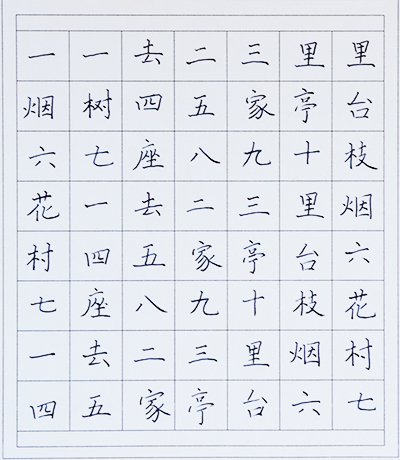 一一去二三里里
烟树四五家亭台
六七座八九十枝
花一去二三里烟
村四五家亭台六
七座八九十枝花
一去二三里烟村
四五家亭台六七